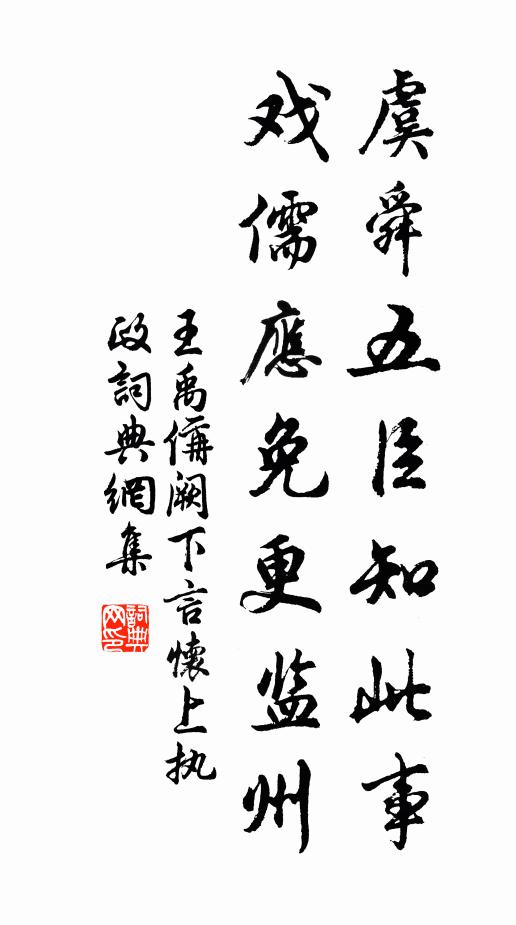 虞舜五臣知此事
戏儒應免更监州
王禹偁阙下言懷上执
政詞典網集
詞典網印